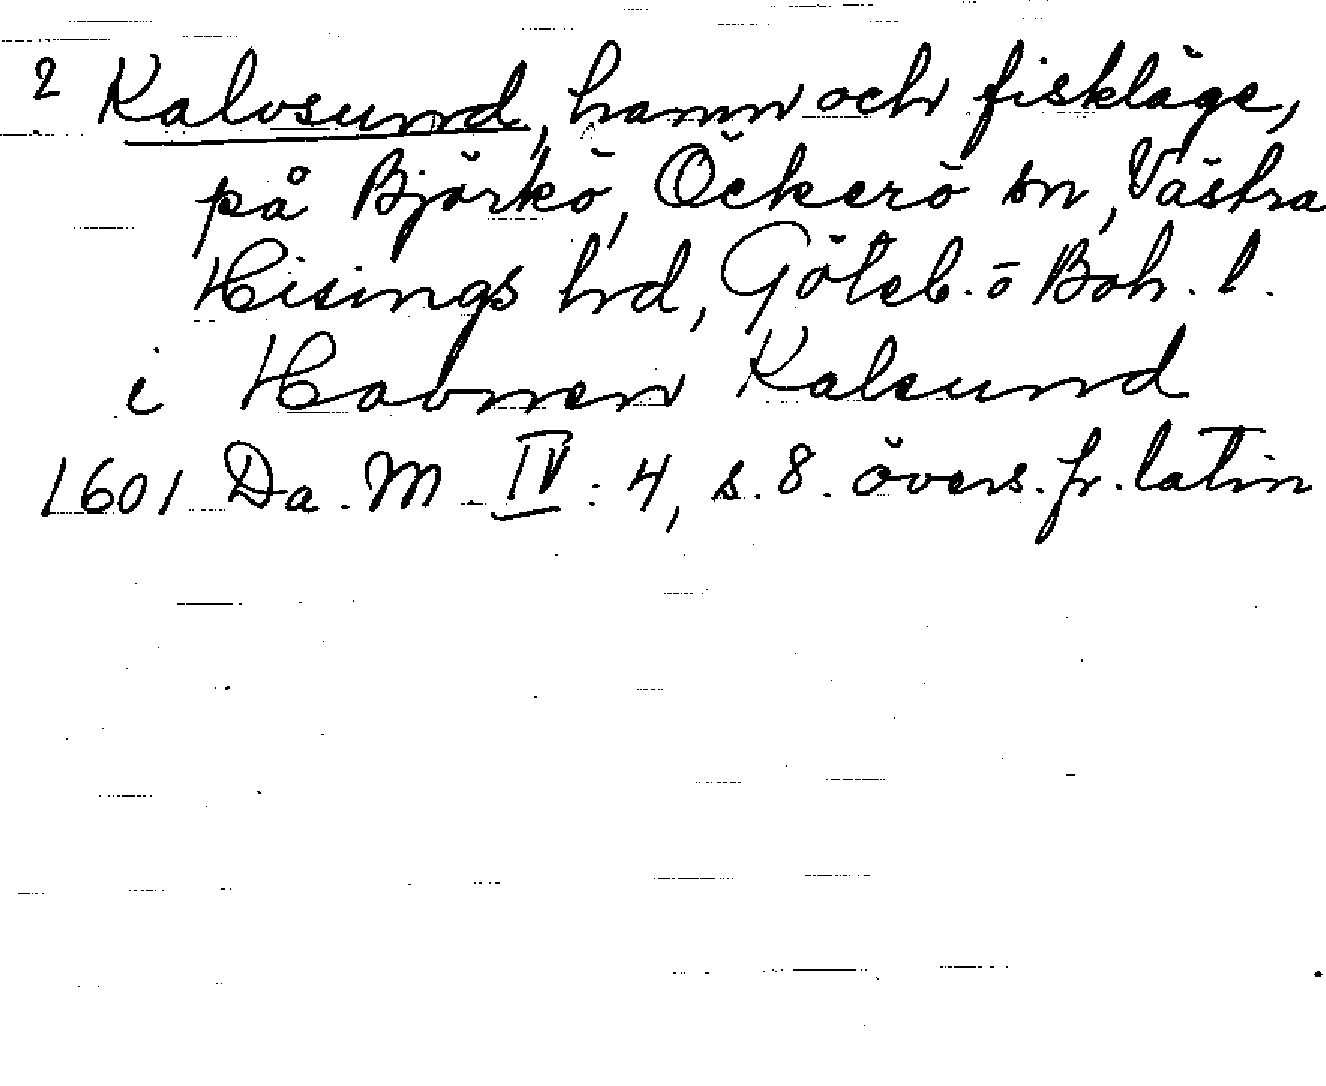 2 Kalvsund, hamn och fiskläge,
på Björkö, Öckerö sn, Västra
Hisings hrd, Göteb. o Boh. l.
i Havnen Kalsund
1601 Da. M. IV: 4, s. 8. övers. fr. latin